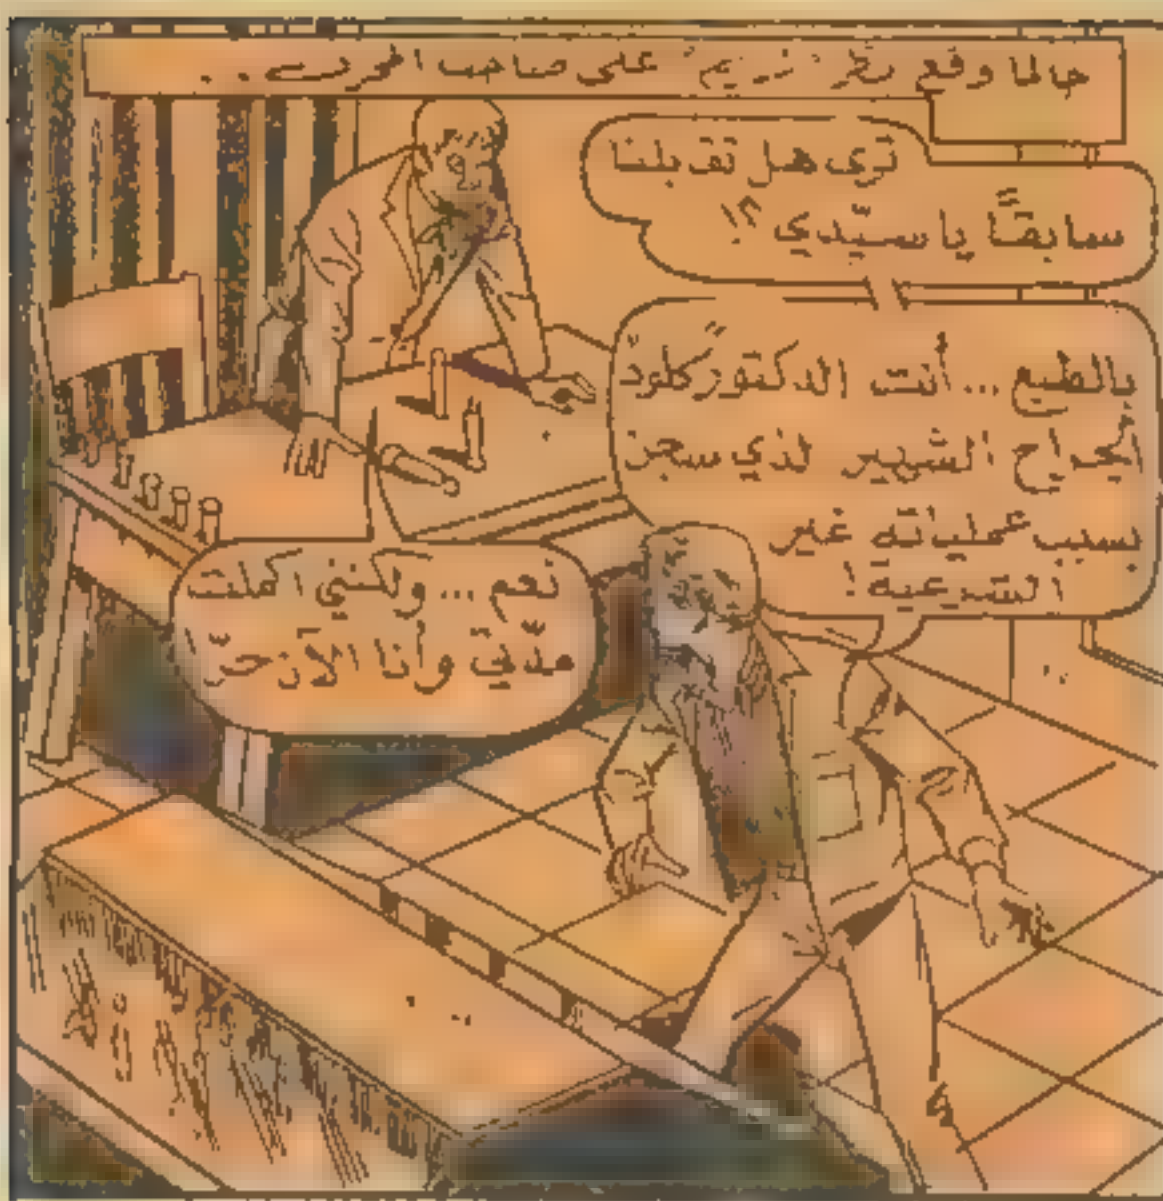 حالما وقع نظر "نديم" على صاحب المحرك..
تُرى هل تقابلنا
سابقًا يا سيّدي؟!
بالطبع... أنت الدكتور كلود
الجراح الشهير الذي سجن
بسبب عملياته غير
الشرعية!
نعم... ولكنني اكملت
مدّتي وأنا الآن حرّ